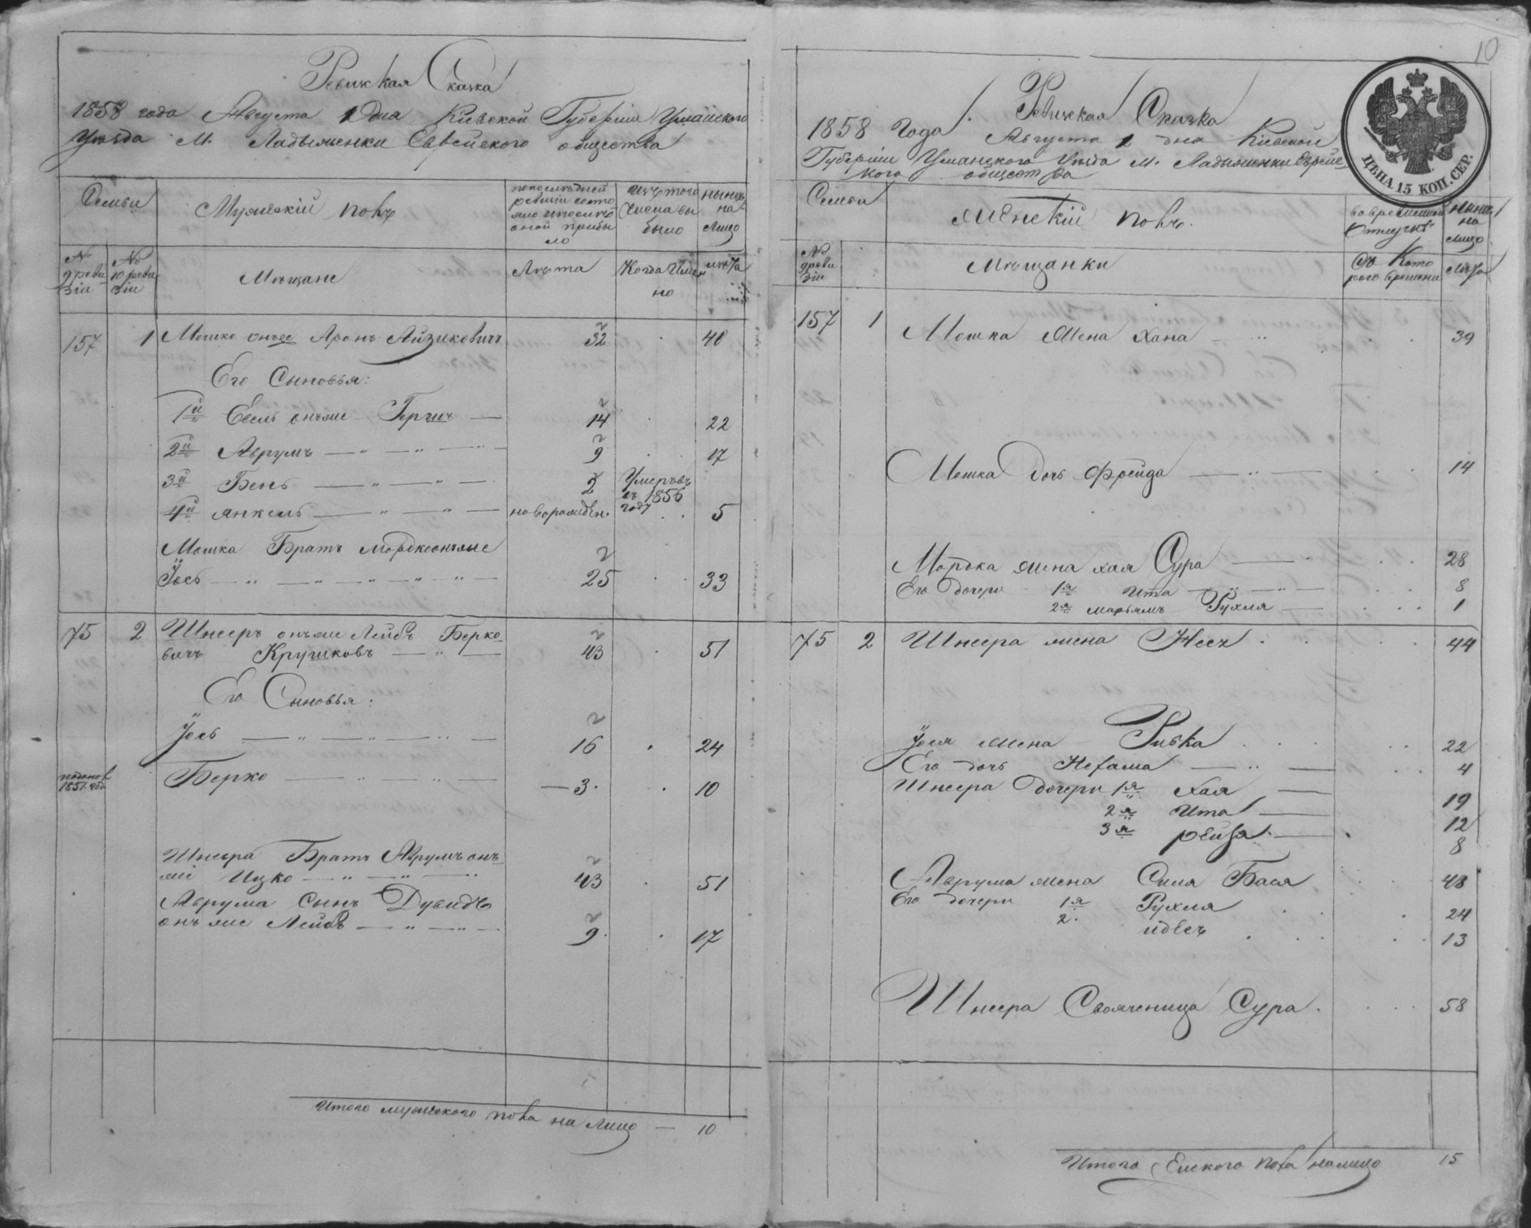 Ревизкая Сказка
1858 года Августа 1 дня Киевской Губернiи Уманского
уезда М. Ладыженки Еврейского общества
Семьи
Мужескiй полъ
последней ревизiи состояло и после оной прибыло
изъ того числа выбыло
ныне на лицо
№ 9 ревизiи
№ 10 ревизiи
Мещане
Лета
Когда именно
лета
157 1 Мошко онъже Аронъ Айзиковичъ 32 40
Его Сыновья:
1й Евель онъже Гершъ 14 22
2й Аврумъ 9 17
3й Бень 2 Умеръ въ 1856 году
4й Янкель новорожден. 5
Мошка Братъ Мордко онъже
Iось 25 33
75 2 Шнееръ онъже Лейбъ Берко-
вичъ Кружковъ 43 51
Его Сыновья:
Iось 16 24
1851 Берко 3 10
Шнеера Братъ Аврумъ онъ-
же Ицко 43 51
Аврума Сынъ Дувидъ
онъ же Лейбъ 9 17
Итого мужеского пола на лицо — 10
10
Ревизкая Сказка
1858 Года Августа 1 дня Киевской
Губернiи Уманского Уезда М. Ладыженки Еврейс-
кого общества
ЦѢНА 15 КОП. СЕР.
Семьи
Женскiй полъ.
во временной отлучке
ныне на лицо
№ 9 ревизiи
Мещанки
Съ Которого времени
Лета
157 1 Мошка Жена Хана 39
Мошка дочь Фрейда 14
Мордка жена Хая Сура 28
Его дочери 1я Ита 8
2я Марьямъ Рухля 1
75 2 Шнеера жена Неся 44
Iося жена Ривка 22
Его дочь Нехама 4
Шнеера дочери 1я Хая 19
2я Ита 12
3я Рейзя 8
Аврума жена Сима Бася 48
Его дочери 1я Рухля 24
2. 13
Шнеера Свояченица Сура. 58
Итого Женского пола на лицо 15